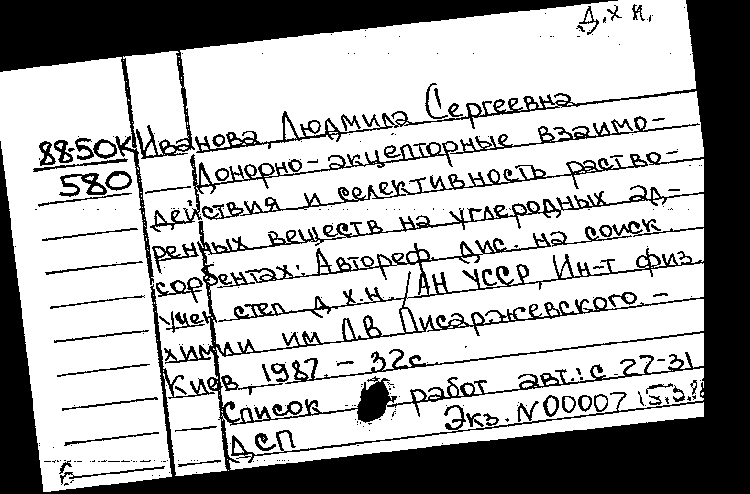 Д.х н.
8850К Иванова, Людмила Сергеевна
580 Донорно-акцепторные взаимо-
действия и селективность раство-
ренных веществ на углеродных ад-
сорбентах: Автореф дис. на соиск.
учен степ д.х.н. /АН УССР, Ин-т физ.
химии им Л.В Писаржевского. -
Киев, 1987. - 32с
Список работ авт.: с 27-31
ДСП Экз. N00007 15.3.88
6